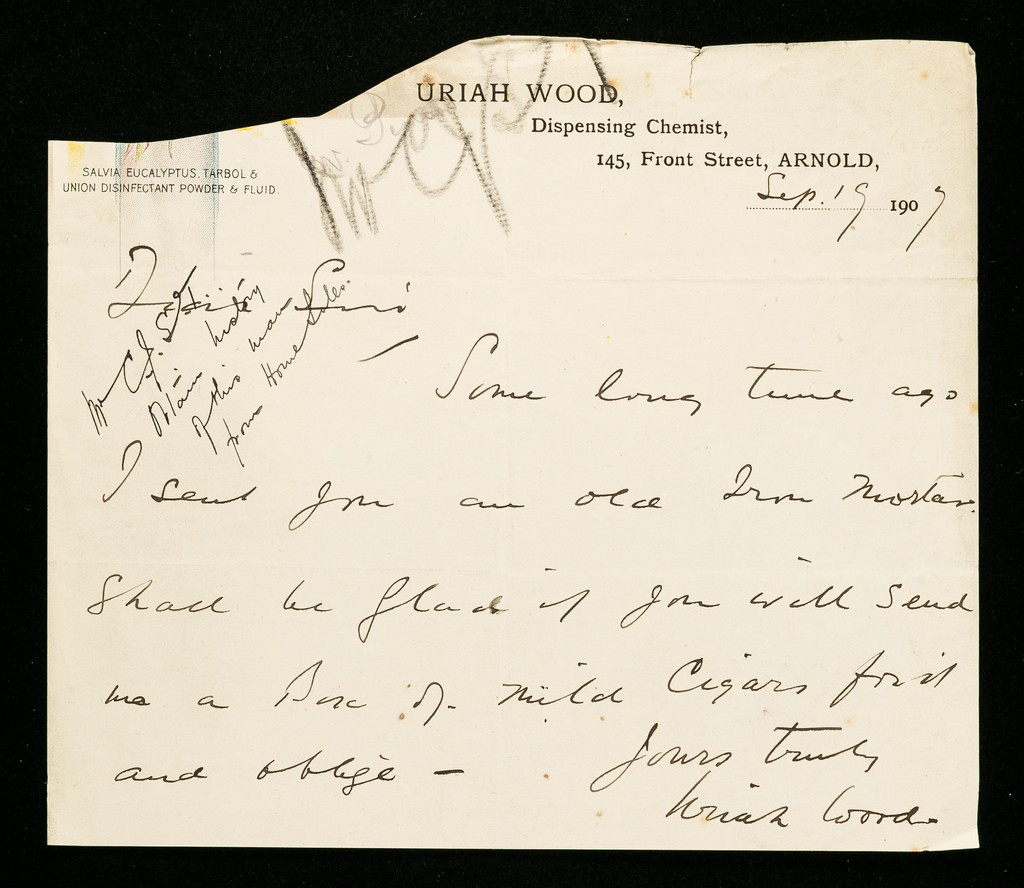 URIAH WOOD,
Dispensing Chemist,
145, Front Street, ARNOLD,
SALVIA EUCALYPTUS. TARBOL &
UNION DISINFECTANT POWDER & FLUID.
Sep. 19 1907
Dear Sirs
Mr C.J.S.T.
Obtain history
of this man
from Home Sales.
Some long time ago
I sent you an old Iron Mortar.
Shall be Glad if you will send
me a Box of mild Cigars for it
and oblige –
Yours truly
Uriah Wood